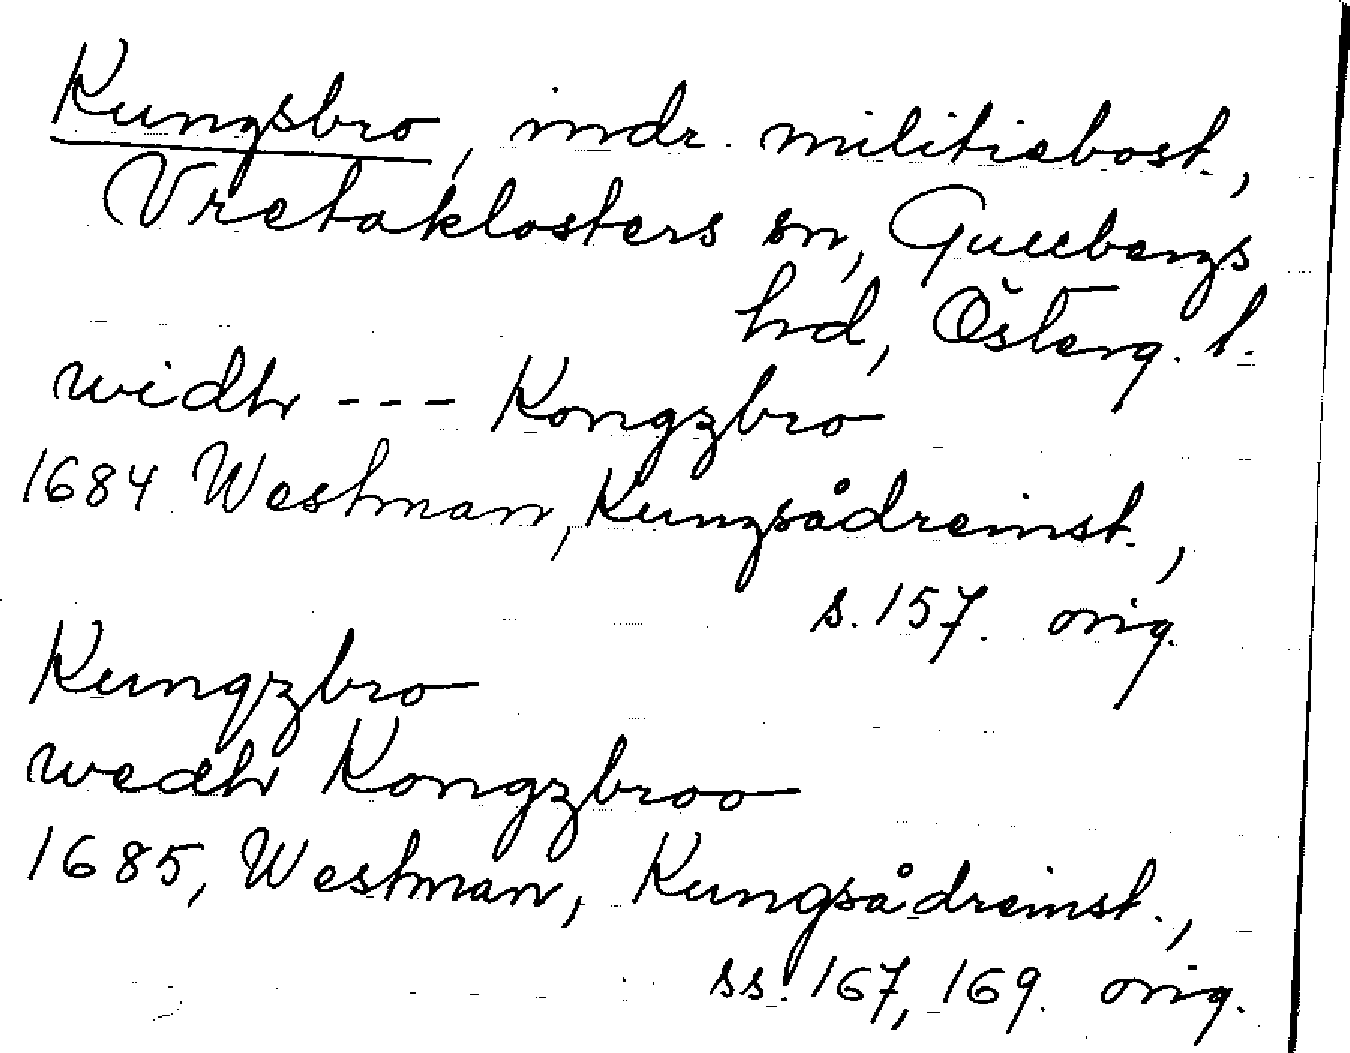 Kungsbro, indr. militiebost.,
Vretaklosters sn, Gullbergs
hd, Österg. l.
widh --- Kongzbro
1684 Westman, Kungsådreinst.,
s. 157. orig.
Kungzbro
wedh Kongzbroo
1685, Westman, Kungsådreinst.,
ss. 167, 169. orig.